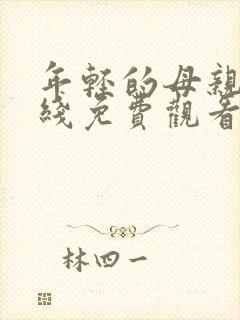 年輕的母親
綫免費觀看
林四一